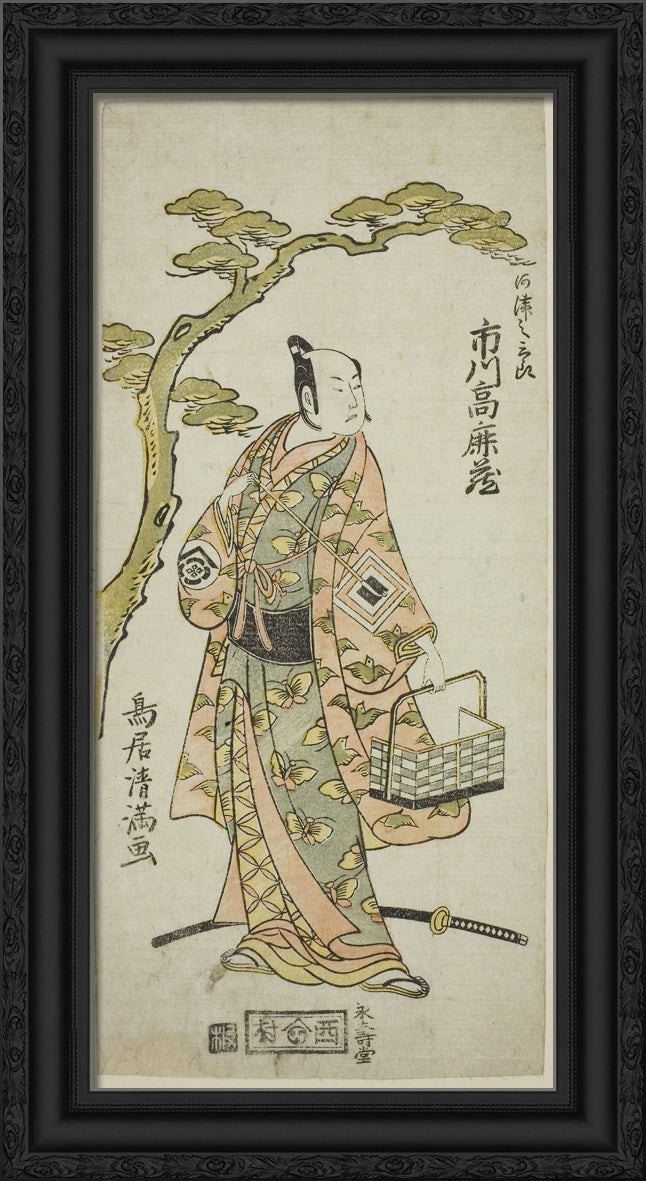 河津之三郎
市川高麻蔵
鳥居清満画
永寿堂
西村
板